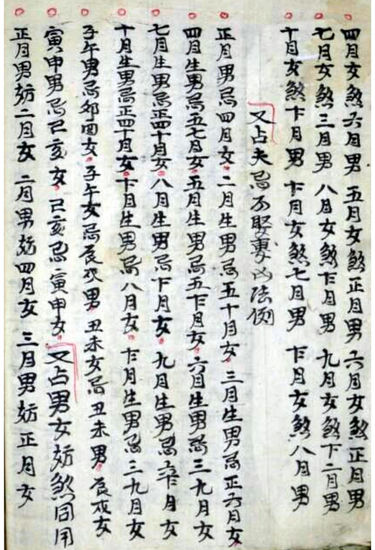 四月女煞六月男 五月女煞正月男 六月女煞正月男
七月女煞三月男 八月女煞月男 九月女煞二月男
十月女煞月男 月女煞七月男 月女煞八月男
又占夫忌不娶妻凶法例
正月男忌四月女 二月生男忌五十月女 三月生男忌正六月女
四月生男忌五七月女 五月生男忌五月女 六月生男忌三九月女
七月生男忌正四十月女 八月生男忌月女 九月生男忌月女
十月生男忌正四十月女 月生男忌八月女 月生男忌三九月女
子午男忌卯酉女 子午女忌辰戌男 丑未女忌丑未男 辰戌女
寅申男忌己亥女 己亥忌寅申女 又占男女妨煞同用
正月男妨二月女 二月男妨四月女 三月男妨正月女